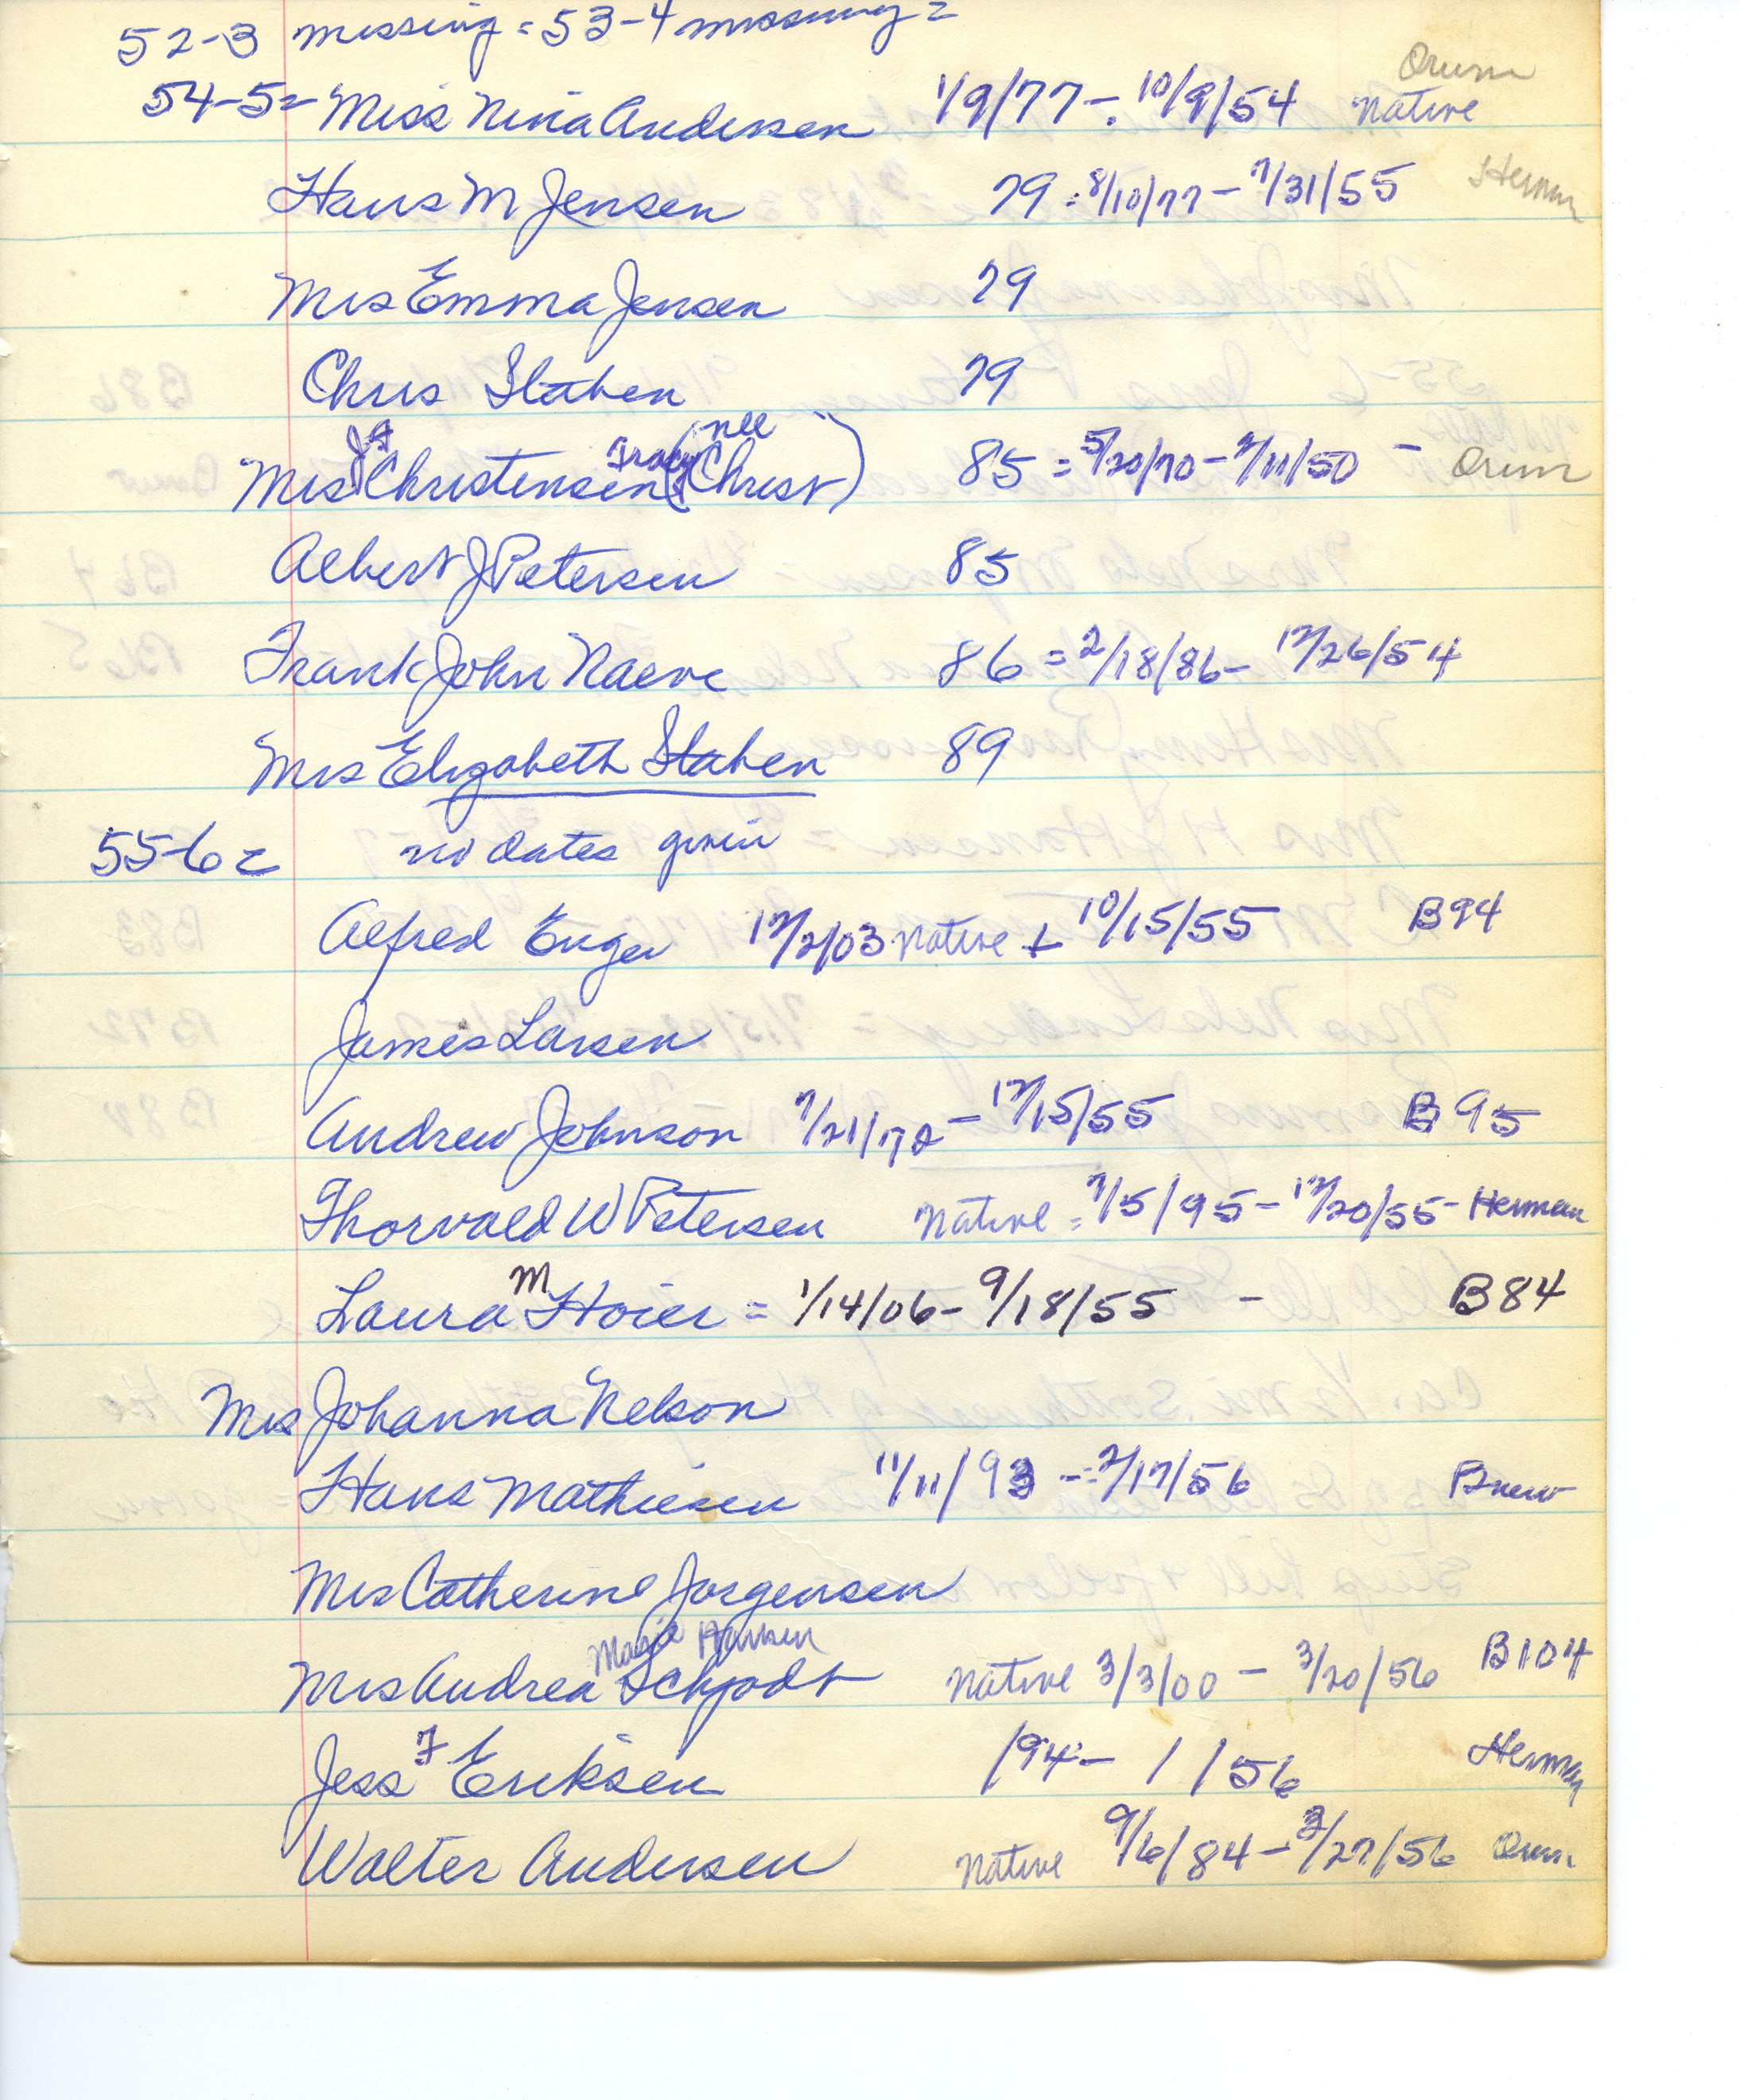 52-3 missing = 53-4 missing =
Orum
54-5= Miss Nina Andersen 1/9/77 - 10/9/54 Native
Hans M Jensen 79 = 8/10/77 - 7/31/55 Herman
Mrs Emma Jensen 79
Chris Staben 79
nee
Mrs Christensen (Tracy Christ) 85 = 5/20/70 - 7/11/50 - Orum
Albert J Petersen 85
Frank John Naeve 86 = 2/18/86 - 12/26/54
Mrs Elizabeth Staben 89
55-6 = no dates given
Alfred Enger 12/2/03 Native + 10/15/55 B94
James Larsen
Andrew Johnson 7/21/72 - 12/15/55 B95
Thorvald W Petersen Native = 7/5/95 - 12/20/55 - Herman
Laura M Hoier = 1/14/06 - 9/18/55 - B84
Mrs Johanna Nelson
Hans Mathiesen 11/11/93 - 2/17/56 Bnew
Mrs Catherine Jorgensen
Marie Hansen
Mrs Andrea Schjodt Native 3/3/00 - 3/20/56 B104
Jess F Eriksen /94 - / /56 Herman
Walter Andersen Native 9/6/84 - 3/27/56 Orum